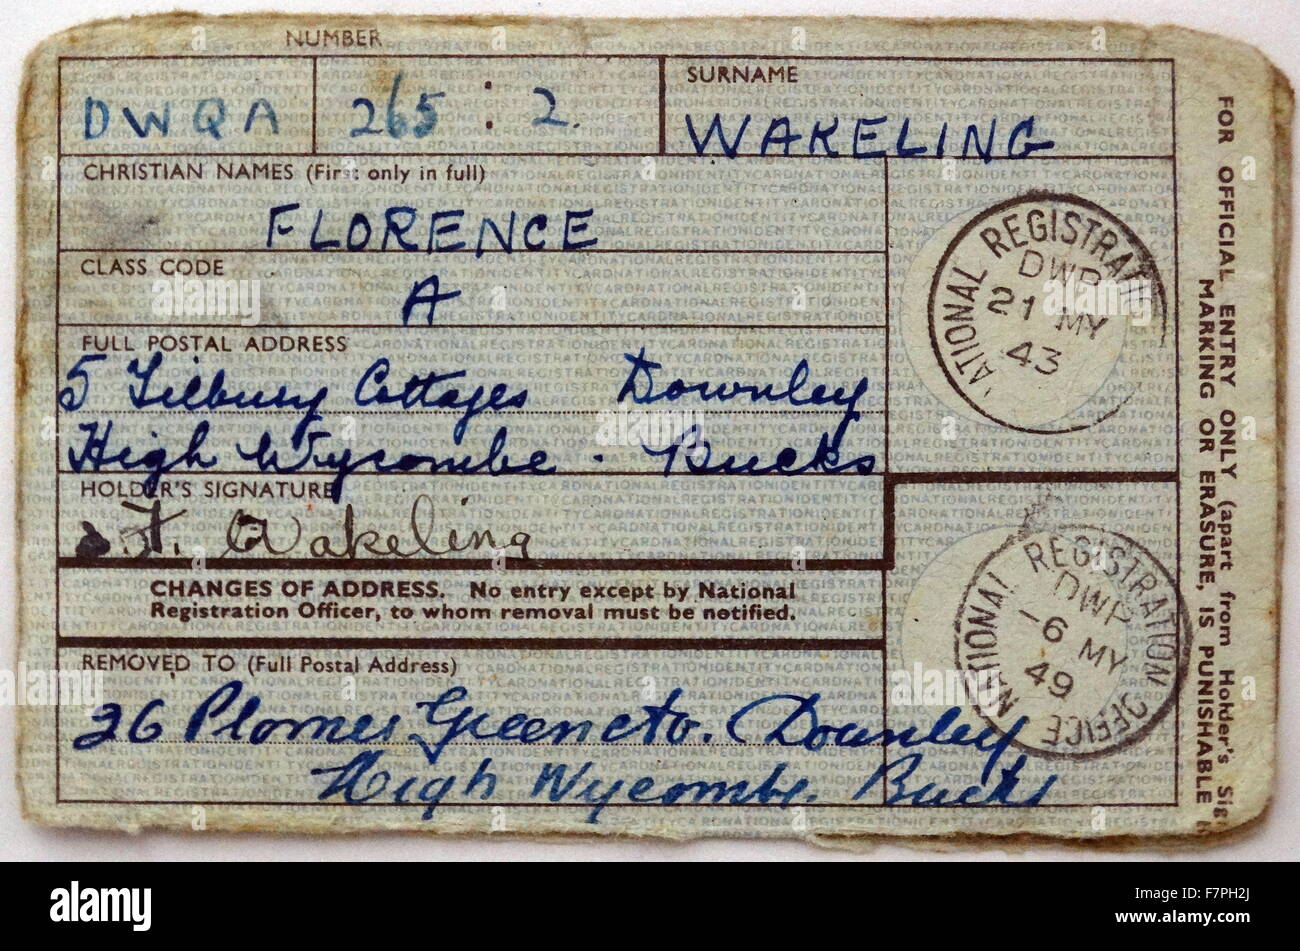 NUMBER
DWQA 265 : 2.
SURNAME
WAKELING
CHRISTIAN NAMES (First only in full)
FLORENCE
CLASS CODE
A
FULL POSTAL ADDRESS
5 Tilbury Cottages Downley
High Wycombe . Bucks
HOLDER'S SIGNATURE
F. Wakeling
CHANGES OF ADDRESS. No entry except by National
Registration Officer, to whom removal must be notified.
REMOVED TO (Full Postal Address)
26 Plomer Green Downley
High Wycombe. Bucks
NATIONAL REGISTRATI
21 MY
43
NATIONAL REGISTRATION OFFICE
DWP
-6 MY
49
FOR OFFICIAL ENTRY ONLY (apart from Holder's Sig
MARKING OR ERASURE, IS PUNISHABLE
alamy
alamy stock photo
F7PH2J
www.alamy.com